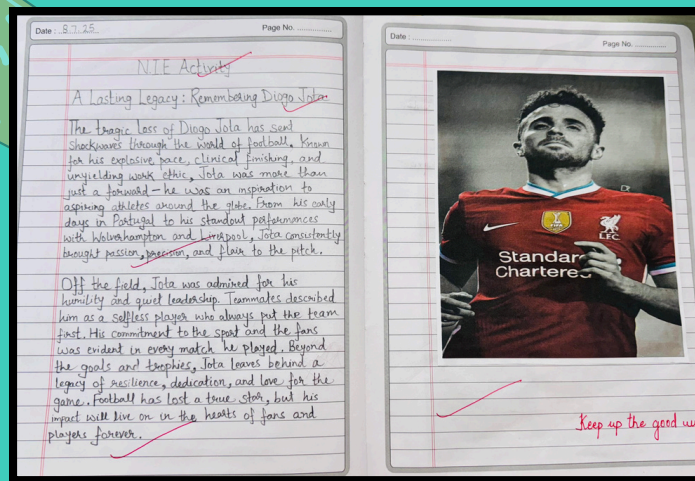 Date : 8.7.25 Page No. ..............
N.I.E Activity
A Lasting Legacy : Remembering Diogo Jota
The tragic loss of Diogo Jota has sent
shockwaves through the world of football. Known
for his explosive pace, clinical finishing, and
unyielding work ethic, Jota was more than
just a forward - he was an inspiration to
aspiring athletes around the globe. From his early
days in Portugal to his standout performances
with Wolverhampton and Liverpool, Jota consistently
brought passion, precision, and flair to the pitch.
Off the field, Jota was admired for his
humility and quiet leadership. Teammates described
him as a selfless player who always put the team
first. His commitment to the sport and the fans
was evident in every match he played. Beyond
the goals and trophies, Jota leaves behind a
legacy of resilience, dedication, and love for the
game. Football has lost a true star, but his
impact will live on in the hearts of fans and
players forever.
Date : ..............
Page No. ..............
L.F.C.
Standard
Chartered
Keep up the good